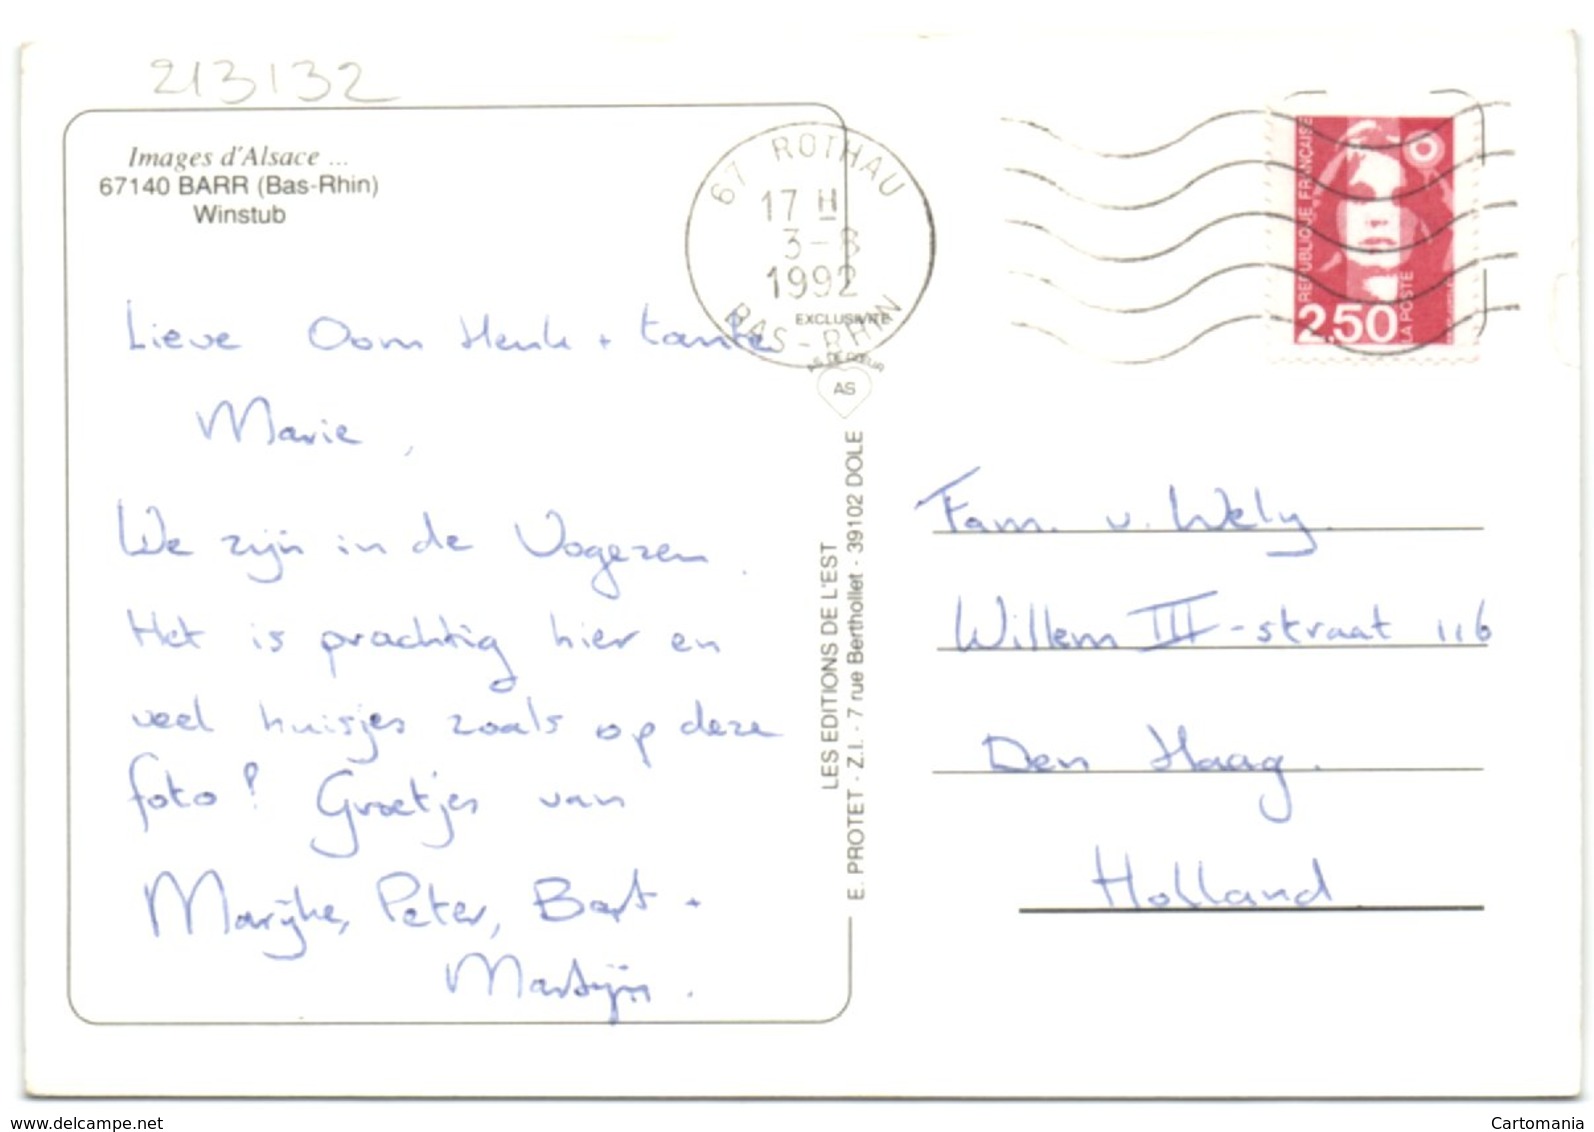 213132
Images d'Alsace ...
67140 BARR (Bas-Rhin)
Winstub
67 ROTHAU
17 H
3-8
1992
BAS-RHIN
REPUBLIQUE FRANÇAISE
2,50
LA POSTE
EXCLUSIVITE
AS DE CŒUR
AS
LES EDITIONS DE L'EST
E. PROTET - Z.I. - 7 rue Berthollet - 39102 DOLE
Lieve Oom Henk + tante
Marie,
We zijn in de Vogezen.
Het is prachtig hier en
veel huisjes zoals op deze
foto! Groetjes van
Marijke, Peter, Bart +
Martijn.
Fam. v. Wely.
Willem III-straat 116
Den Haag.
Holland.
www.delcampe.net
Cartomania